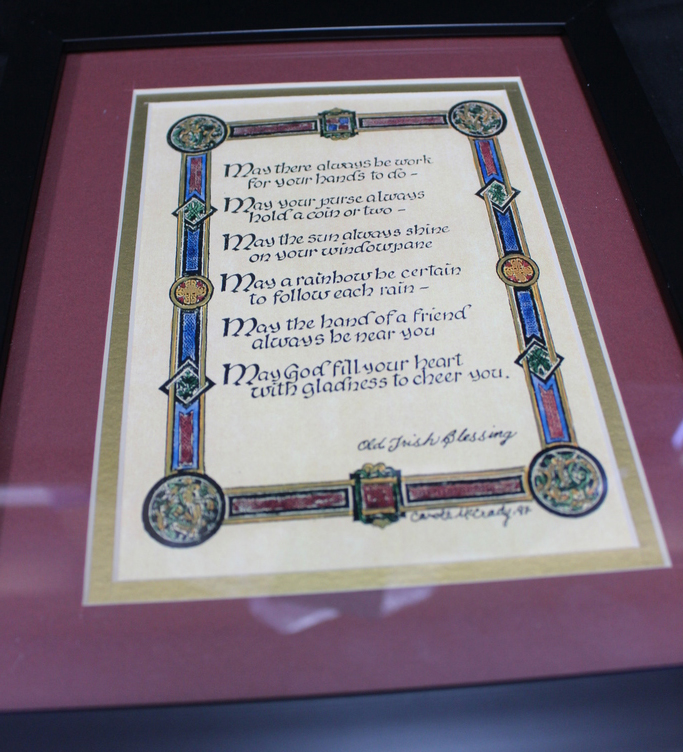 May there always be work
for your hands to do –
May your purse always
hold a coin or two –
May the sun always shine
on your windowpane
May a rainbow be certain
to follow each rain –
May the hand of a friend
always be near you
May God fill your heart
with gladness to cheer you.
Old Irish Blessing
Carole McCrady